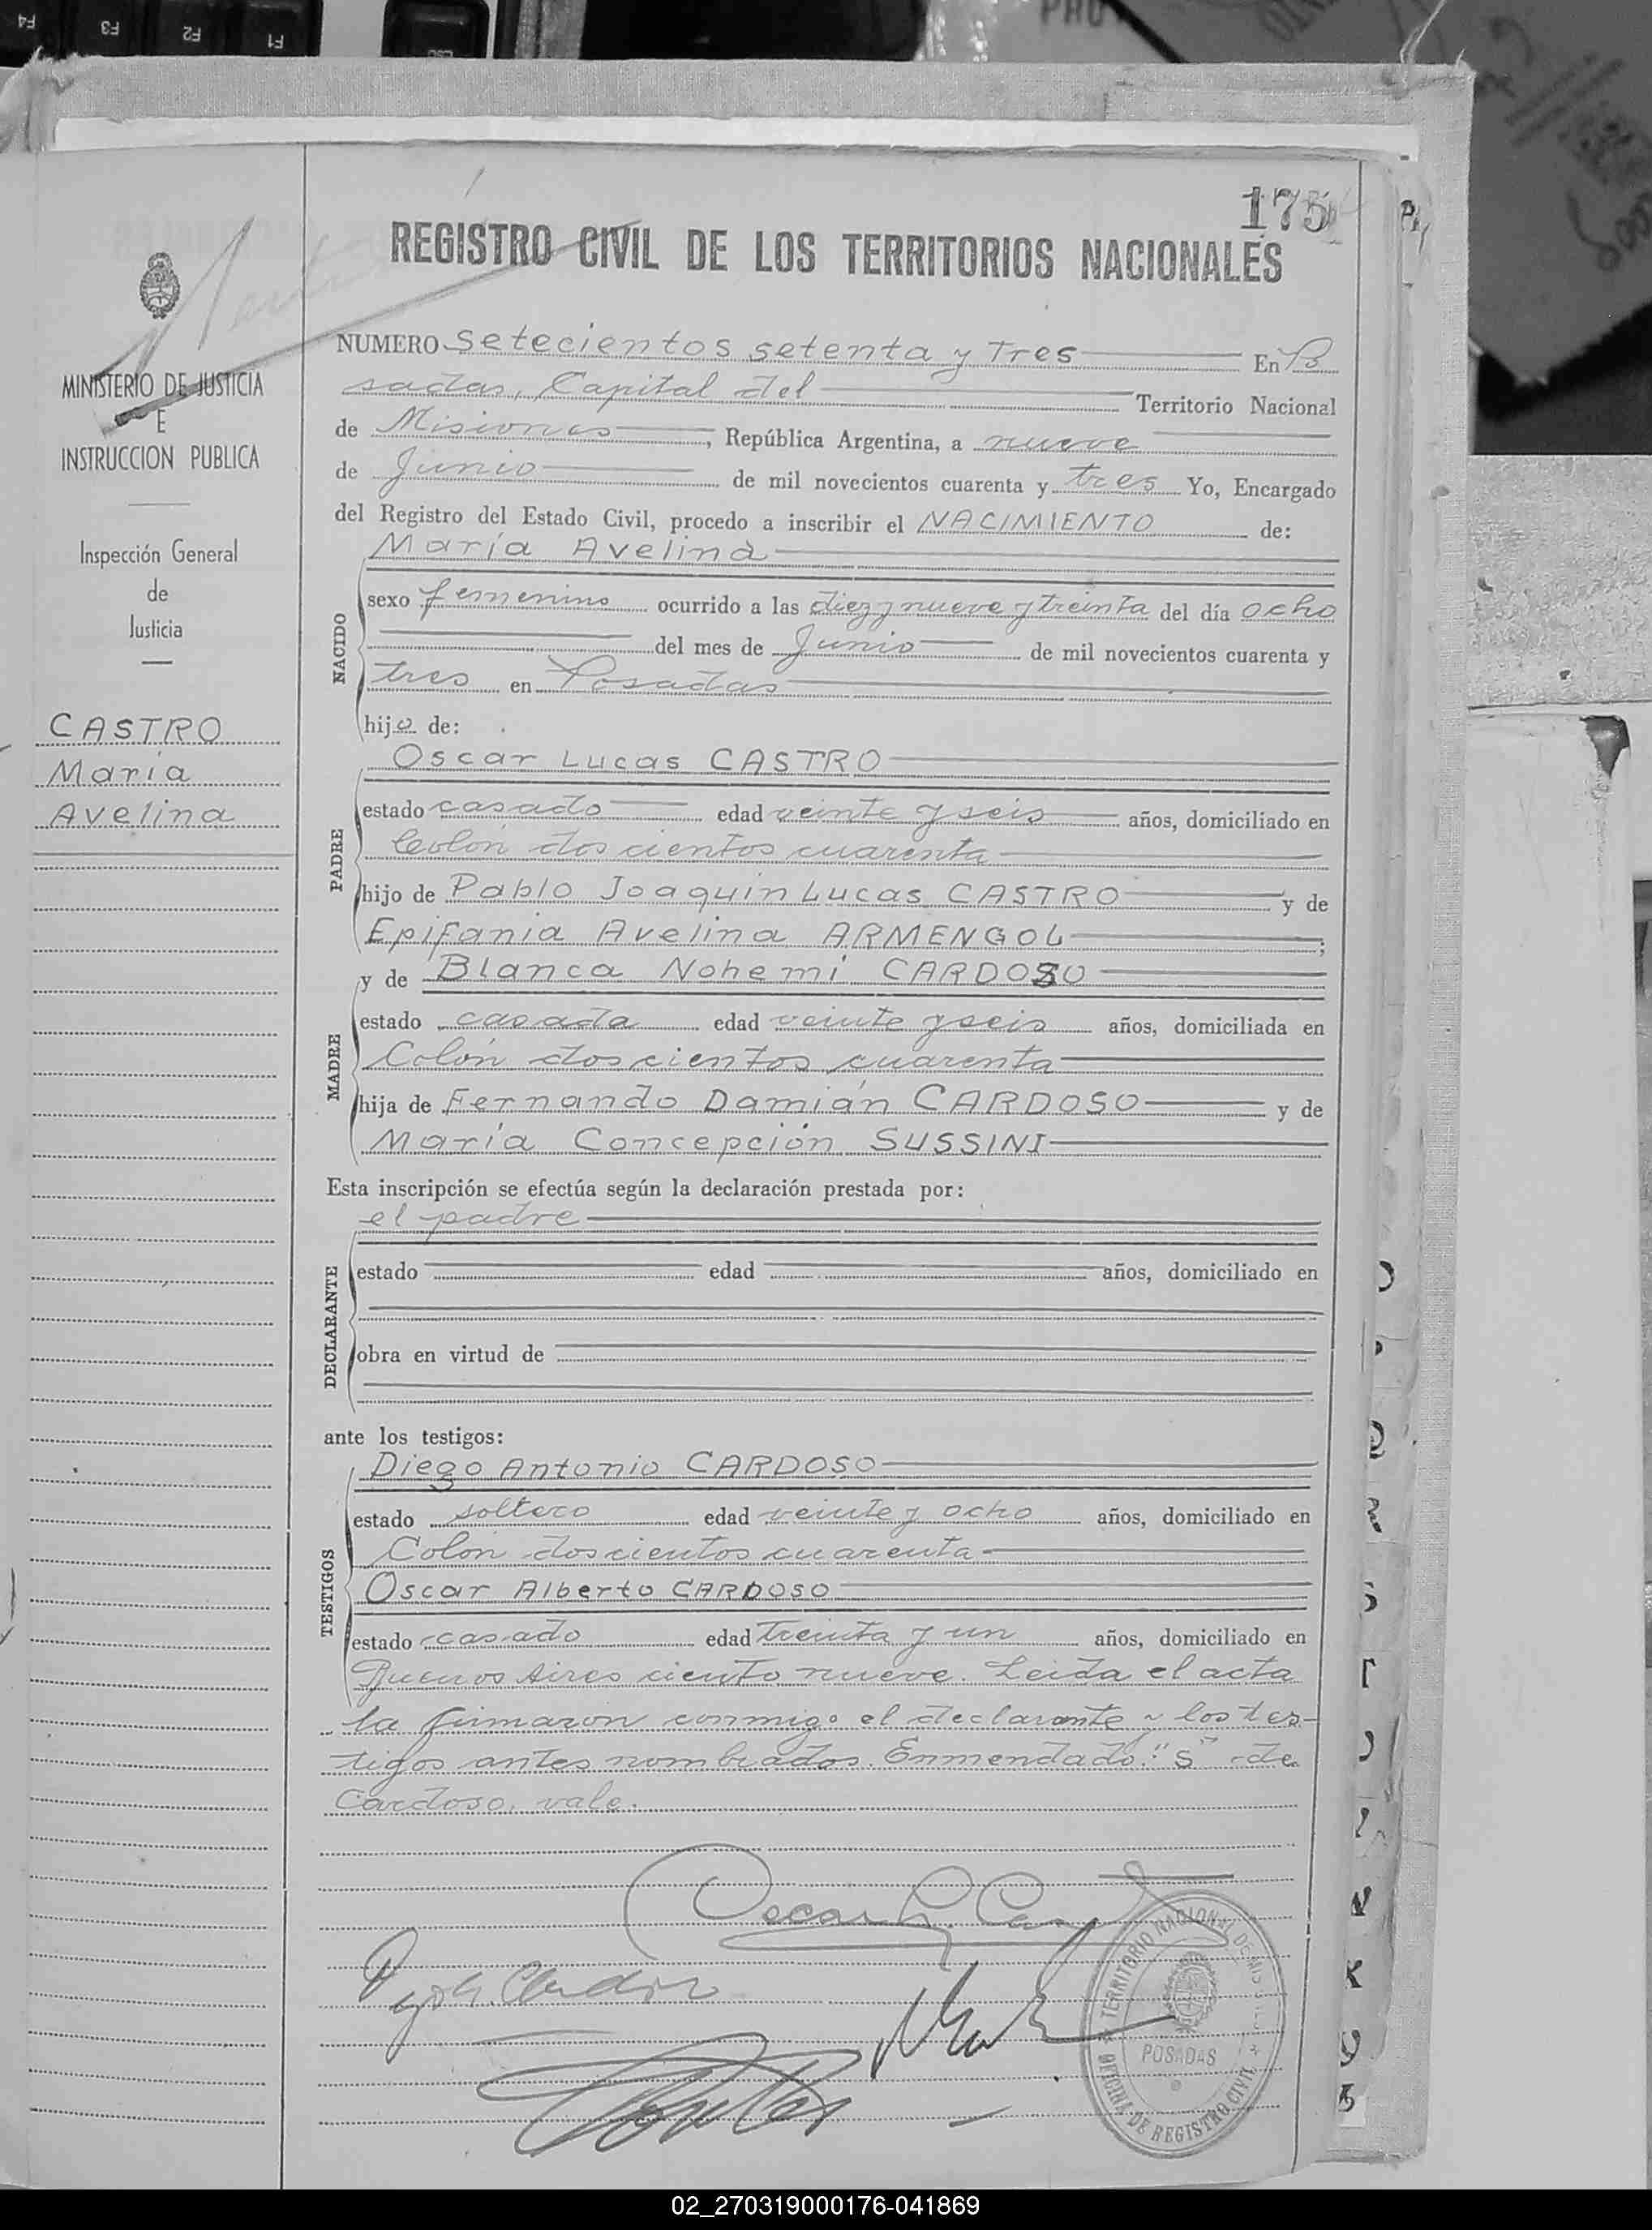 F4 F3 F2 F1
175
REGISTRO CIVIL DE LOS TERRITORIOS NACIONALES
MINISTERIO DE JUSTICIA
E
INSTRUCCION PUBLICA
Inspección General
de
Justicia
CASTRO
María
Avelina
NUMERO Setecientos setenta y Tres En Po
sadas, Capital del Territorio Nacional
de Misiones, República Argentina, a nueve
de Junio de mil novecientos cuarenta y tres Yo, Encargado
del Registro del Estado Civil, procedo a inscribir el NACIMIENTO de:
María Avelina
NACIDO
sexo femenino ocurrido a las diez y nueve y treinta del día ocho
del mes de Junio de mil novecientos cuarenta y
tres en Posadas
hija de:
Oscar Lucas CASTRO
PADRE
estado casado edad veinte y seis años, domiciliado en
Colón doscientos cuarenta
hijo de Pablo Joaquin Lucas CASTRO y de
Epifania Avelina ARMENGOL;
y de Blanca Nohemi CARDOSO
MADRE
estado casada edad veinte y seis años, domiciliada en
Colón doscientos cuarenta
hija de Fernando Damián CARDOSO y de
María Concepción SUSSINI
Esta inscripción se efectúa según la declaración prestada por:
el padre
DECLARANTE
estado edad años, domiciliado en
obra en virtud de
ante los testigos:
Diego Antonio CARDOSO
TESTIGOS
estado soltero edad veinte y ocho años, domiciliado en
Colón doscientos cuarenta
Oscar Alberto CARDOSO
estado casado edad treinta y un años, domiciliado en
Buenos Aires ciento nueve. Leida el acta
la firmaron conmigo el declarante y los tes-
tigos antes nombrados. Enmendado: "S" de
Cardoso. vale.
Oscar L. Cas
TERRITORIO NACIONAL DE MISIONES
POSADAS
OFICINA DE REGISTRO CIVIL
02_270319000176-041869